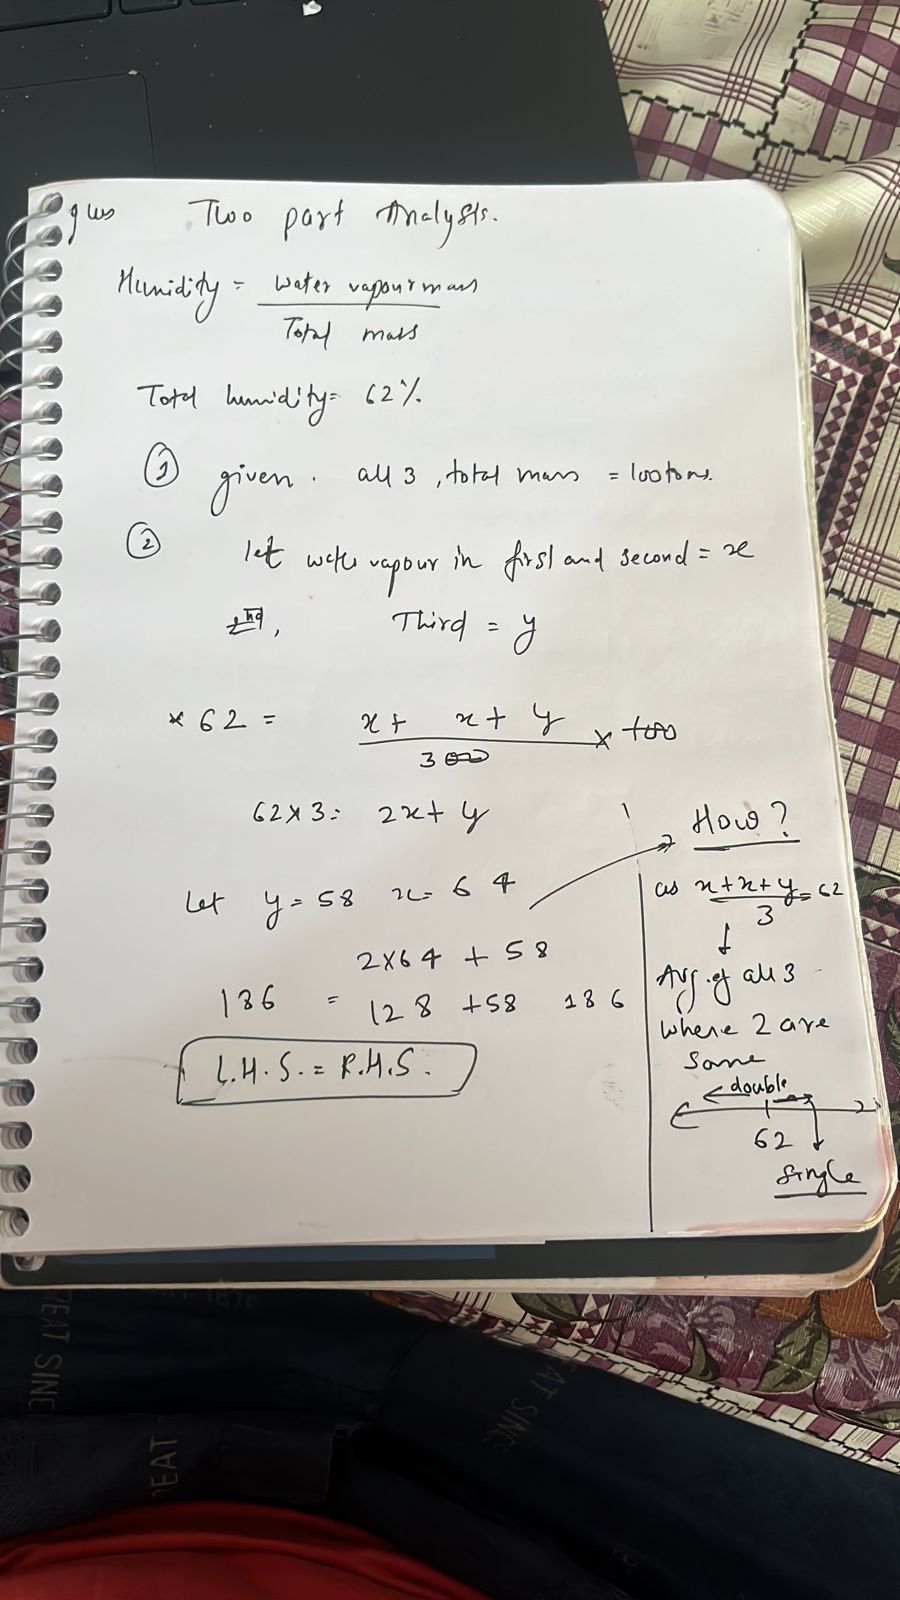 Two part Analysis.
Humidity = Water vapour mass
Total mass
Total humidity = 62%.
① given. all 3, total mass = 100 tons.
②
let water vapour in first and second = x
2nd, Third = y
* 62 = x + x + y
300 × 100
62×3 = 2x + y
Let y = 58 x = 64
2×64 + 58
186 = 128 + 58 186
L.H.S. = R.H.S.
How?
as x+x+y = 62
3
↓
Avg. of all 3
where 2 are
same
double
62
single
EAT SINC
EAT
EAT SINC